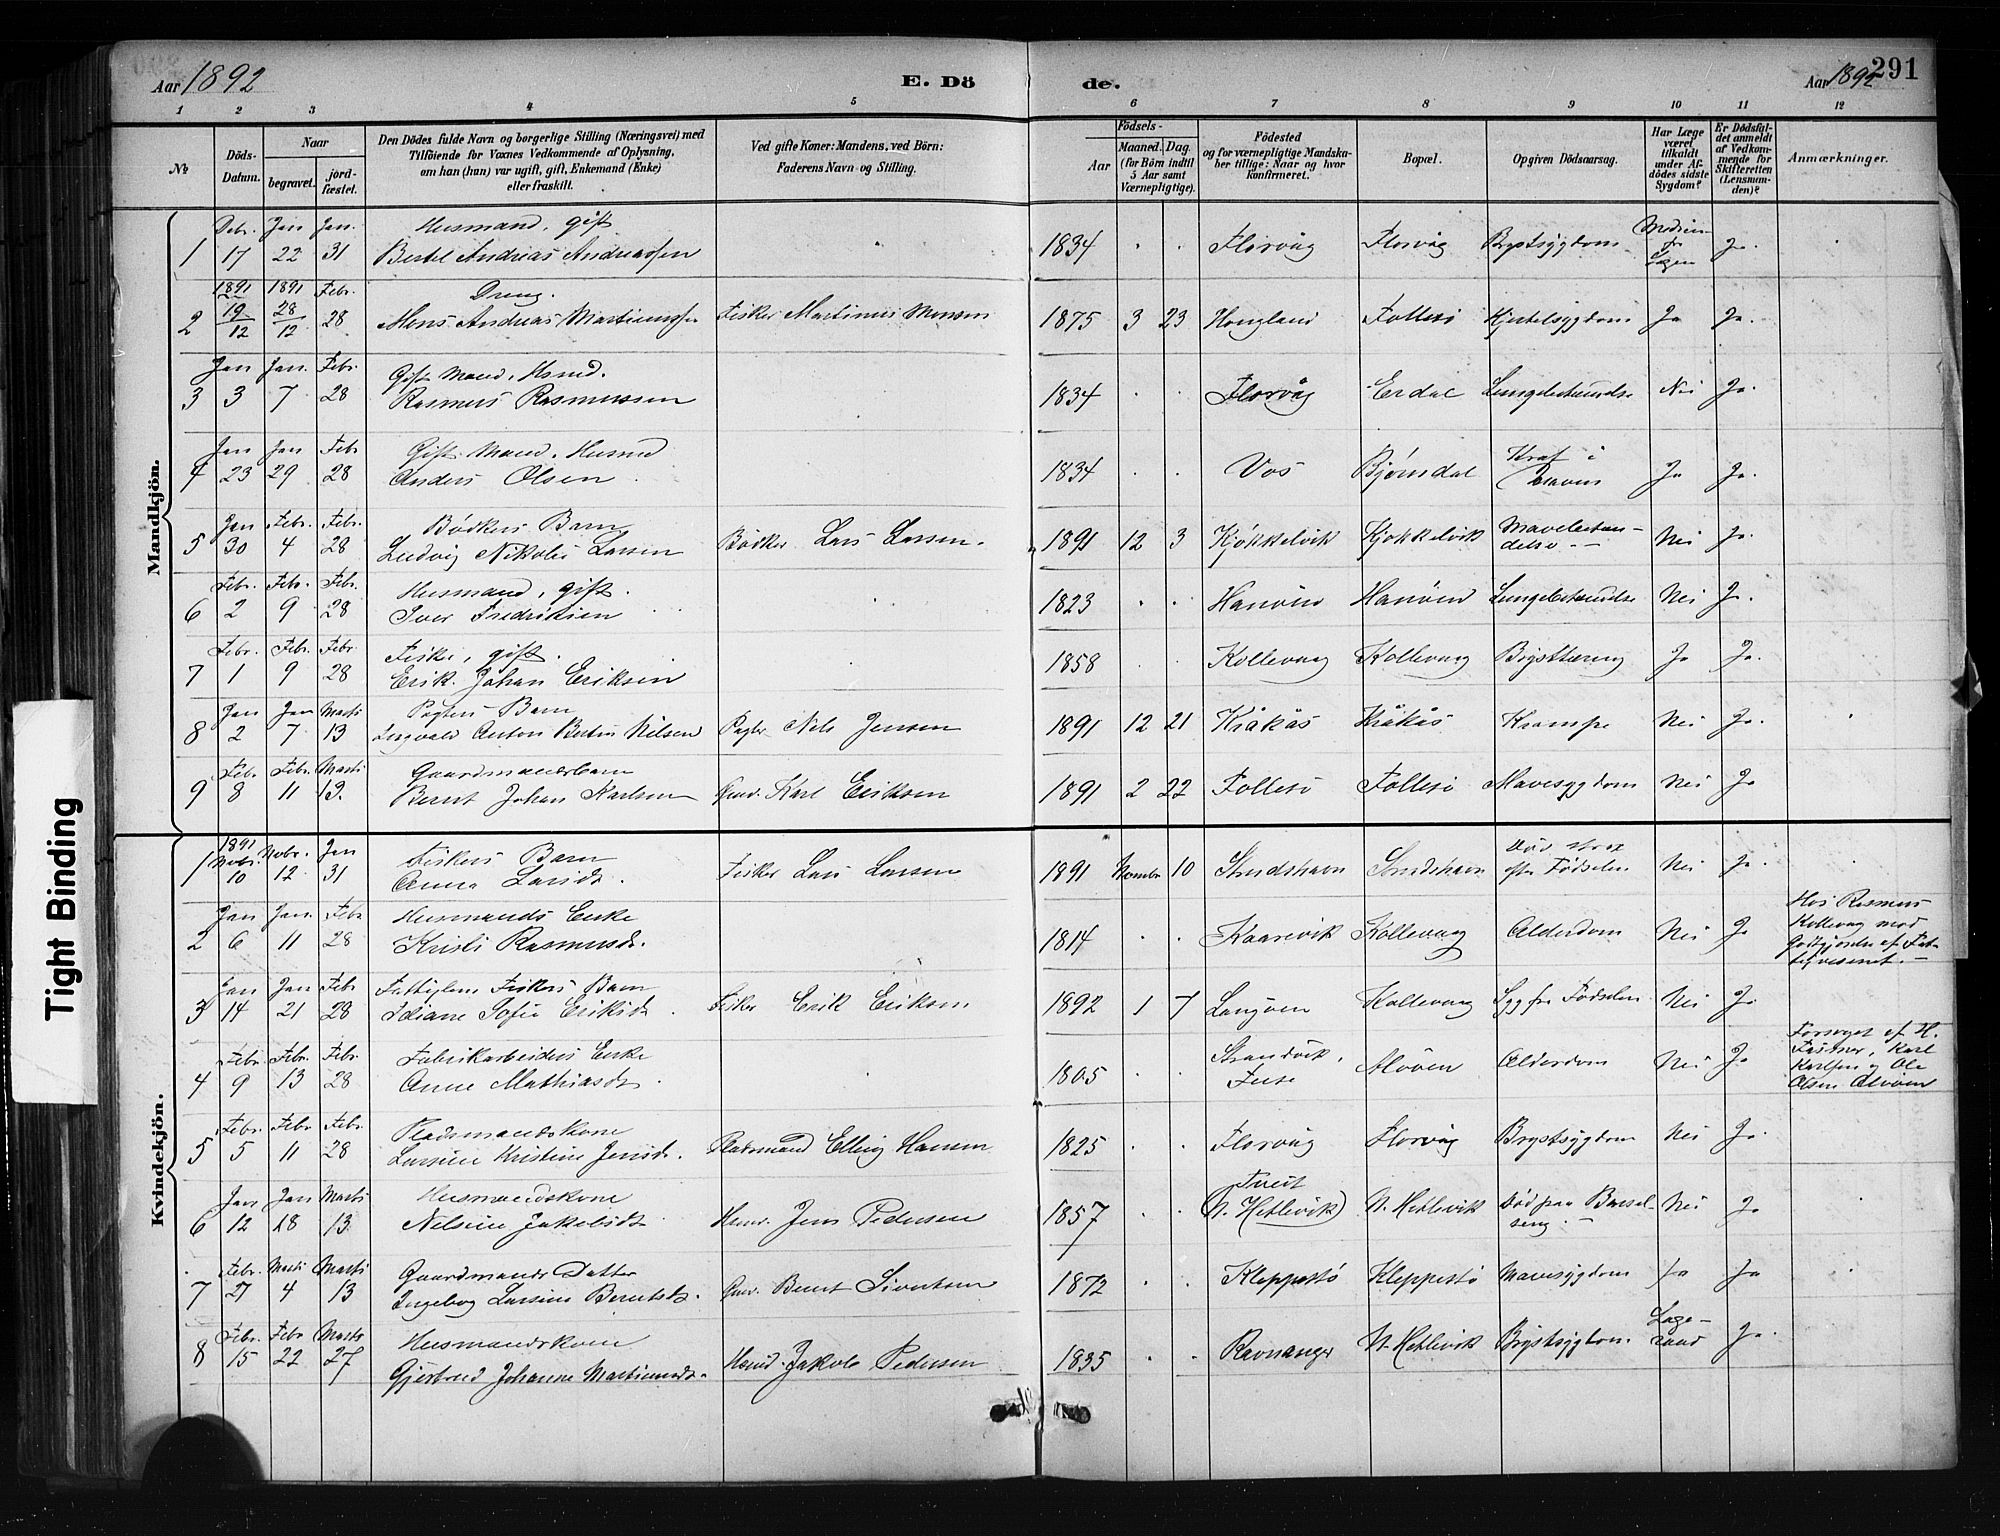 Aar 1892
E. Dö
de.
Aar 1892
291
1 2 3 4 5 6 7 8 9 10 11 12
№
Döds-Datum.
Naar
begravet.
jordfæstet.
Den Dödes fulde Navn og borgerlige Stilling (Næringsvei) med
Tilföiende for Voxnes Vedkommende af Oplysning,
om han (hun) var ugift, gift, Enkemand (Enke)
eller fraskilt.
Ved gifte Koner: Mandens, ved Börn:
Faderens Navn og Stilling.
Födsels-
Aar
Maaned. Dag.
(for Börn indtil
5 Aar samt
Værnepligtige).
Födested
og for værnepligtige Mandska-
ber tillige: Naar og hvor
konfirmeret.
Bopæl.
Opgiven Dödsaarsag.
Har Læge
været
tilkaldt
under Af-
dödes sidste
Sygdom?
Er Dödsfal-
det anmeldt
af Vedkom-
mende for
Skifteretten
(Lensman-
den)?
Anmærkninger.
Mandkjön.
Debr. Jan Jan. Husmand, gift
1 17 22 31 Bertel Andreas Andreassen 1834 Florvåg Florvåg Brystsygdom Ja.
1891 1891 Febr. Dreng.
2 19/12 28/12 28 Mons Andreas Martinussen Fisker Martinus Monsen 1875 3 23 Hougland Follesö Hjertesygdom Ja Ja.
Jan Jan. Febr. Gift Mand, Hsmd.
3 3 7 28 Rasmus Rasmussen 1834 Florvåg Erdal Lungebetændelse Nei Ja.
Jan Jan Febr Gift Mand, Husmd
4 23 29 28 Anders Olsen 1834 Vos Bjørndal Kræft i Maven Ja Ja.
Jan Febr. Febr. Bødkers Barn
5 30 4 28 Ludvig Nikolai Larsen Bødker Lars Larsen. 1891 12 3 Kjøkkelvik Kjøkkelvik Mavebetændelse Nei Ja.
Febr. Febr. Febr. Husmand, gift.
6 2 9 28 Iver Fredriksen 1823 Hanöen Hanöen Lungebetændelse Nei Ja.
Febr. Febr. Febr Fisker, gift.
7 1 9 28 Erik Johan Eriksen 1858 Kollevaag Kollevaag Brysttæring Ja Ja.
Jan Jan Marts Pagters Barn
8 2 7 13 Ingvald Anton Bertin Nilsen Pagter Nels Jensen 1891 12 21 Kråkås Kråkås Krampe Nei Ja.
Febr. Febr. Marts Gaardmandsbarn
9 8 11 13. Bernt Johan Karlsen Gmd. Karl Eriksen 1891 2 22 Follesö Follesö Mavesygdom Nei Ja
Kvindekjön.
1891 Novbr. Novbr. Jan Fiskers Barn
1 10 12 31 Anna Larsdt. Fisker Lars Larsen 1891 Novmbr 10 Strudshavn Strudshavn Död strax efter Födselen Nei Ja.
Jan Jan. Febr Husmands Enke
2 6 11 28 Kristi Rasmusdt. 1814 Kaarevik Kollevaag Alderdom Nei Ja
Hos Rasmus
Kollevaag med
Godtgjörelse af Fat-
tigvæsenet. –
Jan Jan Febr Fattiglem Fiskers Barn
3 14 21 28 Sofie Eriksdt. Fisker Erik Eriksen 1892 1 7 Langöen Kollevaag Syg fra Födselen Nei Ja.
Febr. Febr. Febr. Fabrikarbeiders Enke
4 9 13 28 Anna Mathiasdt. 1805 Strandvik, Fuse Alvöen Alderdom Nei Ja
Forsørget af H.
Fastner, Karl
Karlsen og Ole
Olsen Alvöen
Febr. Febr Febr. Pladsmandskone
5 5 11 28 Larsine Kristine Jensdt. Pladsmand Elling Hansen 1825 Florvåg Florvåg Brystsygdom Nei Ja.
Jan Jan Marts Husmandskone
6 12 18 13. Nelsine Jakobsdt. Hsmd. Jens Pedersen 1857 Tveit (N. Hetlevik) N. Hetlevik Död paa Barselseng. – Nei Ja
Febr. Marts Marts Gaardmands Datter
7 27 4 13 Ingeborg Larsine Berntsdt. Gmd. Bernt Sivertsen 1872 Kleppestö Kleppestö Mavesygdom Ja Ja
Febr. Febr Marts Husmandskone
8 15 22 27 Gjertrud Johanne Martinusdt. Hsmd. Jakob Pedersen 1835 Ravnanger N. Hetlevik Brystsygdom Lægeraad Ja.
Tight Binding